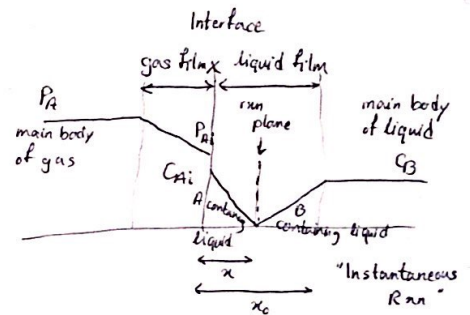 Interface
gas film
liquid film
P_A
main body
of gas
P_Ai
rxn
plane
main body
of liquid
C_B
C_Ai
A containing
liquid
B
containing liquid
x
x_0
"Instantaneous
Rxn"